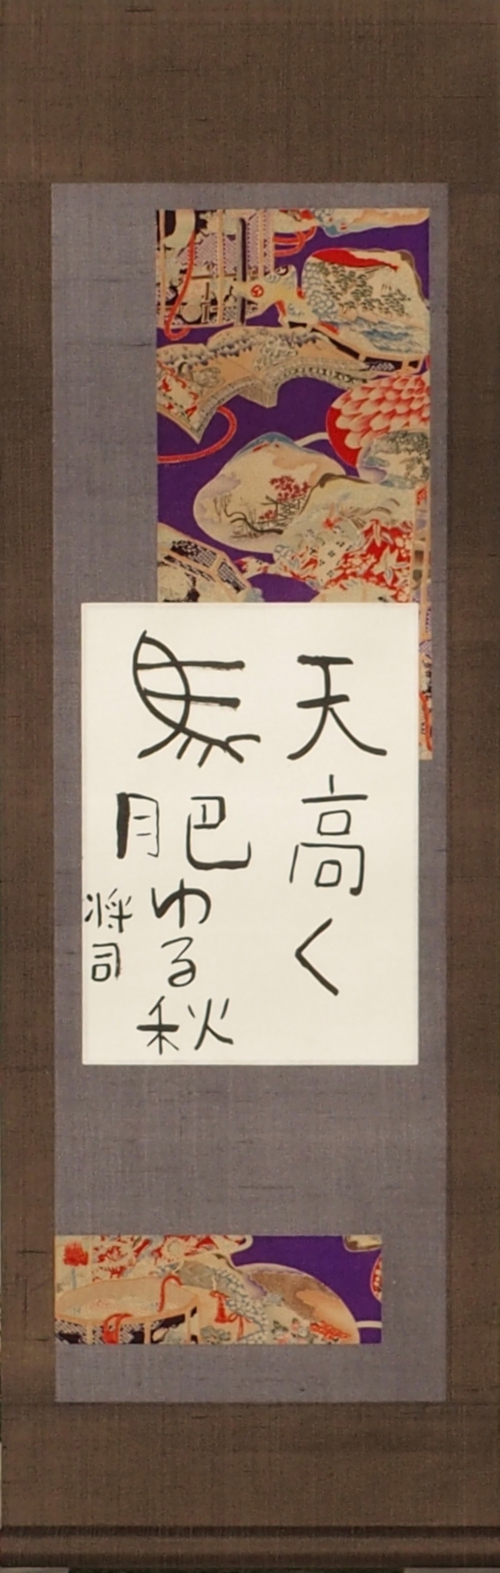 天高く
馬肥ゆる秋
将司